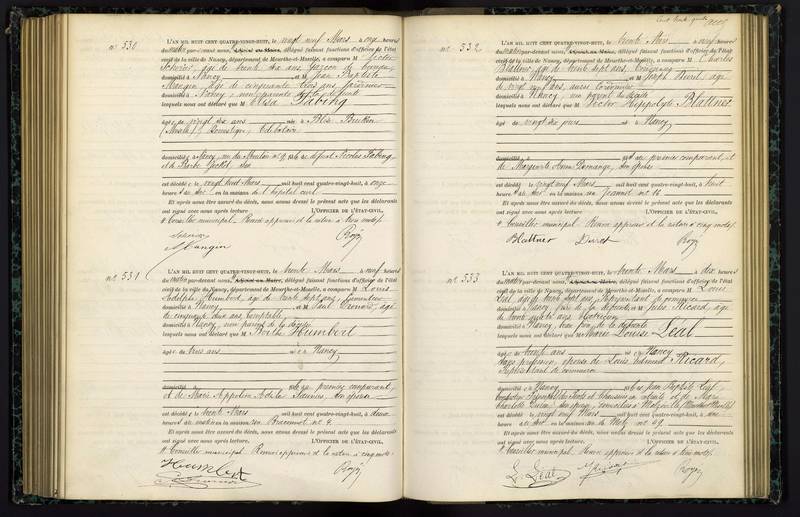 n° 530
L'AN MIL HUIT CENT QUATRE-VINGT-HUIT, le vingt neuf Mars à onze heures
du matin par-devant nous, Adjoint au Maire, délégué faisant fonctions d'officier de l'état
civil de la ville de Nancy, département de Meurthe-et-Moselle, a comparu M
âgé de trente six ans garçon de bureau
domicilié à Nancy et M Jean Baptiste
Mangin âgé de cinquante trois ans jardinier
domicilié à Nancy, non parents de la défunte
lesquels nous ont déclaré que M Elisa Fabing
âgée de vingt dix ans née à Blies
(Moselle) Domestique, Célibataire
domiciliée à Nancy, rue du Moulin n° 9, fille de défunt Nicolas Fabing
et de Barbe
est décédée le vingt huit Mars mil huit cent quatre-vingt-huit, à onze
heures du soir en la maison de l'hôpital civil
Et après nous être assuré du décès, nous avons dressé le présent acte que les déclarants
ont signé avec nous après lecture L'OFFICIER DE L'ÉTAT-CIVIL,
Conseiller municipal. Renvoi approuvé et la rature à trois mots.
Mangin
n° 531
L'AN MIL HUIT CENT QUATRE-VINGT-HUIT, le trente Mars à neuf heures
du matin par-devant nous, Adjoint au Maire, délégué faisant fonctions d'officier de l'état
civil de la ville de Nancy, département de Meurthe-et-Moselle, a comparu M Louis
Adolphe Humbert, âgé de trente sept ans,
domicilié à Nancy et M Paul
de cinquante deux ans, comptable
domicilié à Nancy, non parent de la décédée
lesquels nous ont déclaré que M Humbert
âgée de trois ans née à Nancy
domicilié à fille du premier comparant,
et de Marie Appoline Adèle son épouse
est décédée le trente Mars mil huit cent quatre-vingt-huit, à deux
heures du matin en la maison rue Braconnot n° 4.
Et après nous être assuré du décès, nous avons dressé le présent acte que les déclarants
ont signé avec nous après lecture. L'OFFICIER DE L'ÉTAT-CIVIL,
Conseiller municipal. Renvoi approuvé et la rature à cinq mots.
Humbert
n° 532
L'AN MIL HUIT CENT QUATRE-VINGT-HUIT, le trente Mars à neuf heures
du matin par-devant nous, Adjoint au Maire, délégué faisant fonctions d'officier de l'état
civil de la ville de Nancy, département de Meurthe-et-Moselle, a comparu M Charles
Blattner, âgé de trente sept ans, Cordonnier
domicilié à Nancy et M Joseph Duret, âgé
de vingt neuf ans, aussi cordonnier
domicilié à Nancy, non parent du décédé
lesquels nous ont déclaré que M Victor Hippolyte Blattner
âgé de vingt six jours né à Nancy
domicilié à fils du premier comparant, et
de Marguerite Anna Domange, son épouse
est décédé le vingt neuf Mars mil huit cent quatre-vingt-huit, à huit
heures du soir en la maison rue Jeannot n° 16
Et après nous être assuré du décès, nous avons dressé le présent acte que les déclarants
ont signé avec nous après lecture L'OFFICIER DE L'ÉTAT-CIVIL,
Conseiller municipal. Renvoi approuvé et la rature à cinq mots.
Blattner Duret
n° 533
L'AN MIL HUIT CENT QUATRE-VINGT-HUIT, le trente Mars à dix heures
du matin par-devant nous, Adjoint au Maire, délégué faisant fonctions d'officier de l'état
civil de la ville de Nancy, département de Meurthe-et-Moselle, a comparu M Louis
Léal âgé de trente sept ans, Représentant de commerce
domicilié à Nancy, frère de la défunte, et M Jules Ricard, âgé
de trente ans
domicilié à Nancy, beau frère de la défunte
lesquels nous ont déclaré que Marie Louise Léal
âgée de trente ans née à Nancy
sans profession, épouse de Louis Edmond Ricard,
Représentant de commerce
domiciliée à Nancy fille de Jean Baptiste Léal,
Ponts et Chaussées en retraite et de Marie
Charlotte son épouse, domiciliés à
est décédée le vingt neuf Mars mil huit cent quatre-vingt-huit, à
heures du soir, en la maison rue de Metz n° 49
Et après nous être assuré du décès, nous avons dressé le présent acte que les déclarants
ont signé avec nous après lecture. L'OFFICIER DE L'ÉTAT-CIVIL,
Conseiller municipal. Renvoi approuvé et la rature à cinq mots.
L. Léal